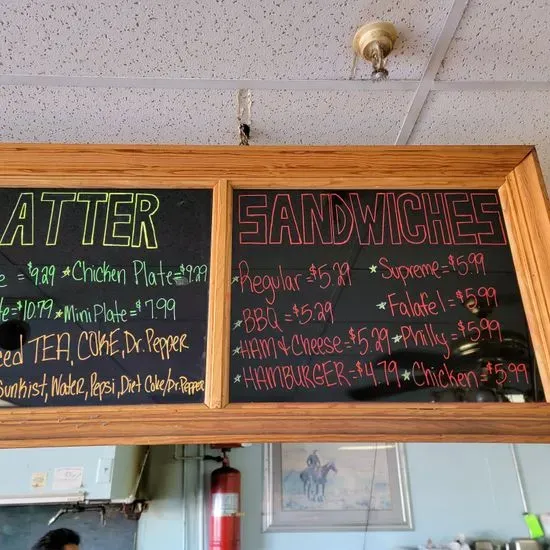 ATTER
e = $9.29 * Chicken Plate = $9.29
te = $10.79 * Mini Plate = $7.99
ced TEA, COKE, Dr. Pepper
Sunkist, Water, Pepsi, Diet Coke/Dr. Pepper
SANDWICHES
* Regular = $5.29 * Supreme = $6.99
* BBQ = $5.29 * Falafel = $5.99
* HAM & Cheese = $5.29 * Philly = $5.99
* HAMBURGER = $4.79 * Chicken = $5.99